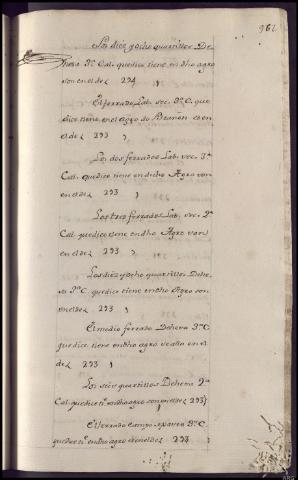 962
Los diez y ocho quartillos De
hesa 3ª Cal. que dice tiene en dho agro
son en el de ҩ 294 )
El ferrado Lab. sec. 3ª C. que
dice tiene en el agro do es en
el de 293 )
Los dos ferrados Lab. sec. 3ª
Cal. que dice tiene en dicho Agro son
en el de 293 )
Los tres ferrados Lab. sec. 2ª
Cal. que dice tiene en dho Agro son
en el de 293 )
Los diez y ocho quartillos Dehe
sa 3ª C. que dice tiene en dho Agro son
en el de 293 )
El medio ferrado Dehesa 3ª C.
que dice tiene en dho agro es en el
de 293 )
Los seis quartillos Dehesa 2ª
Cal. que dice tᵉ en dho agro son en el de 293 )
El ferrado Campo 3ª C.
que dice tᵉ en dho agro es en el de 293 )